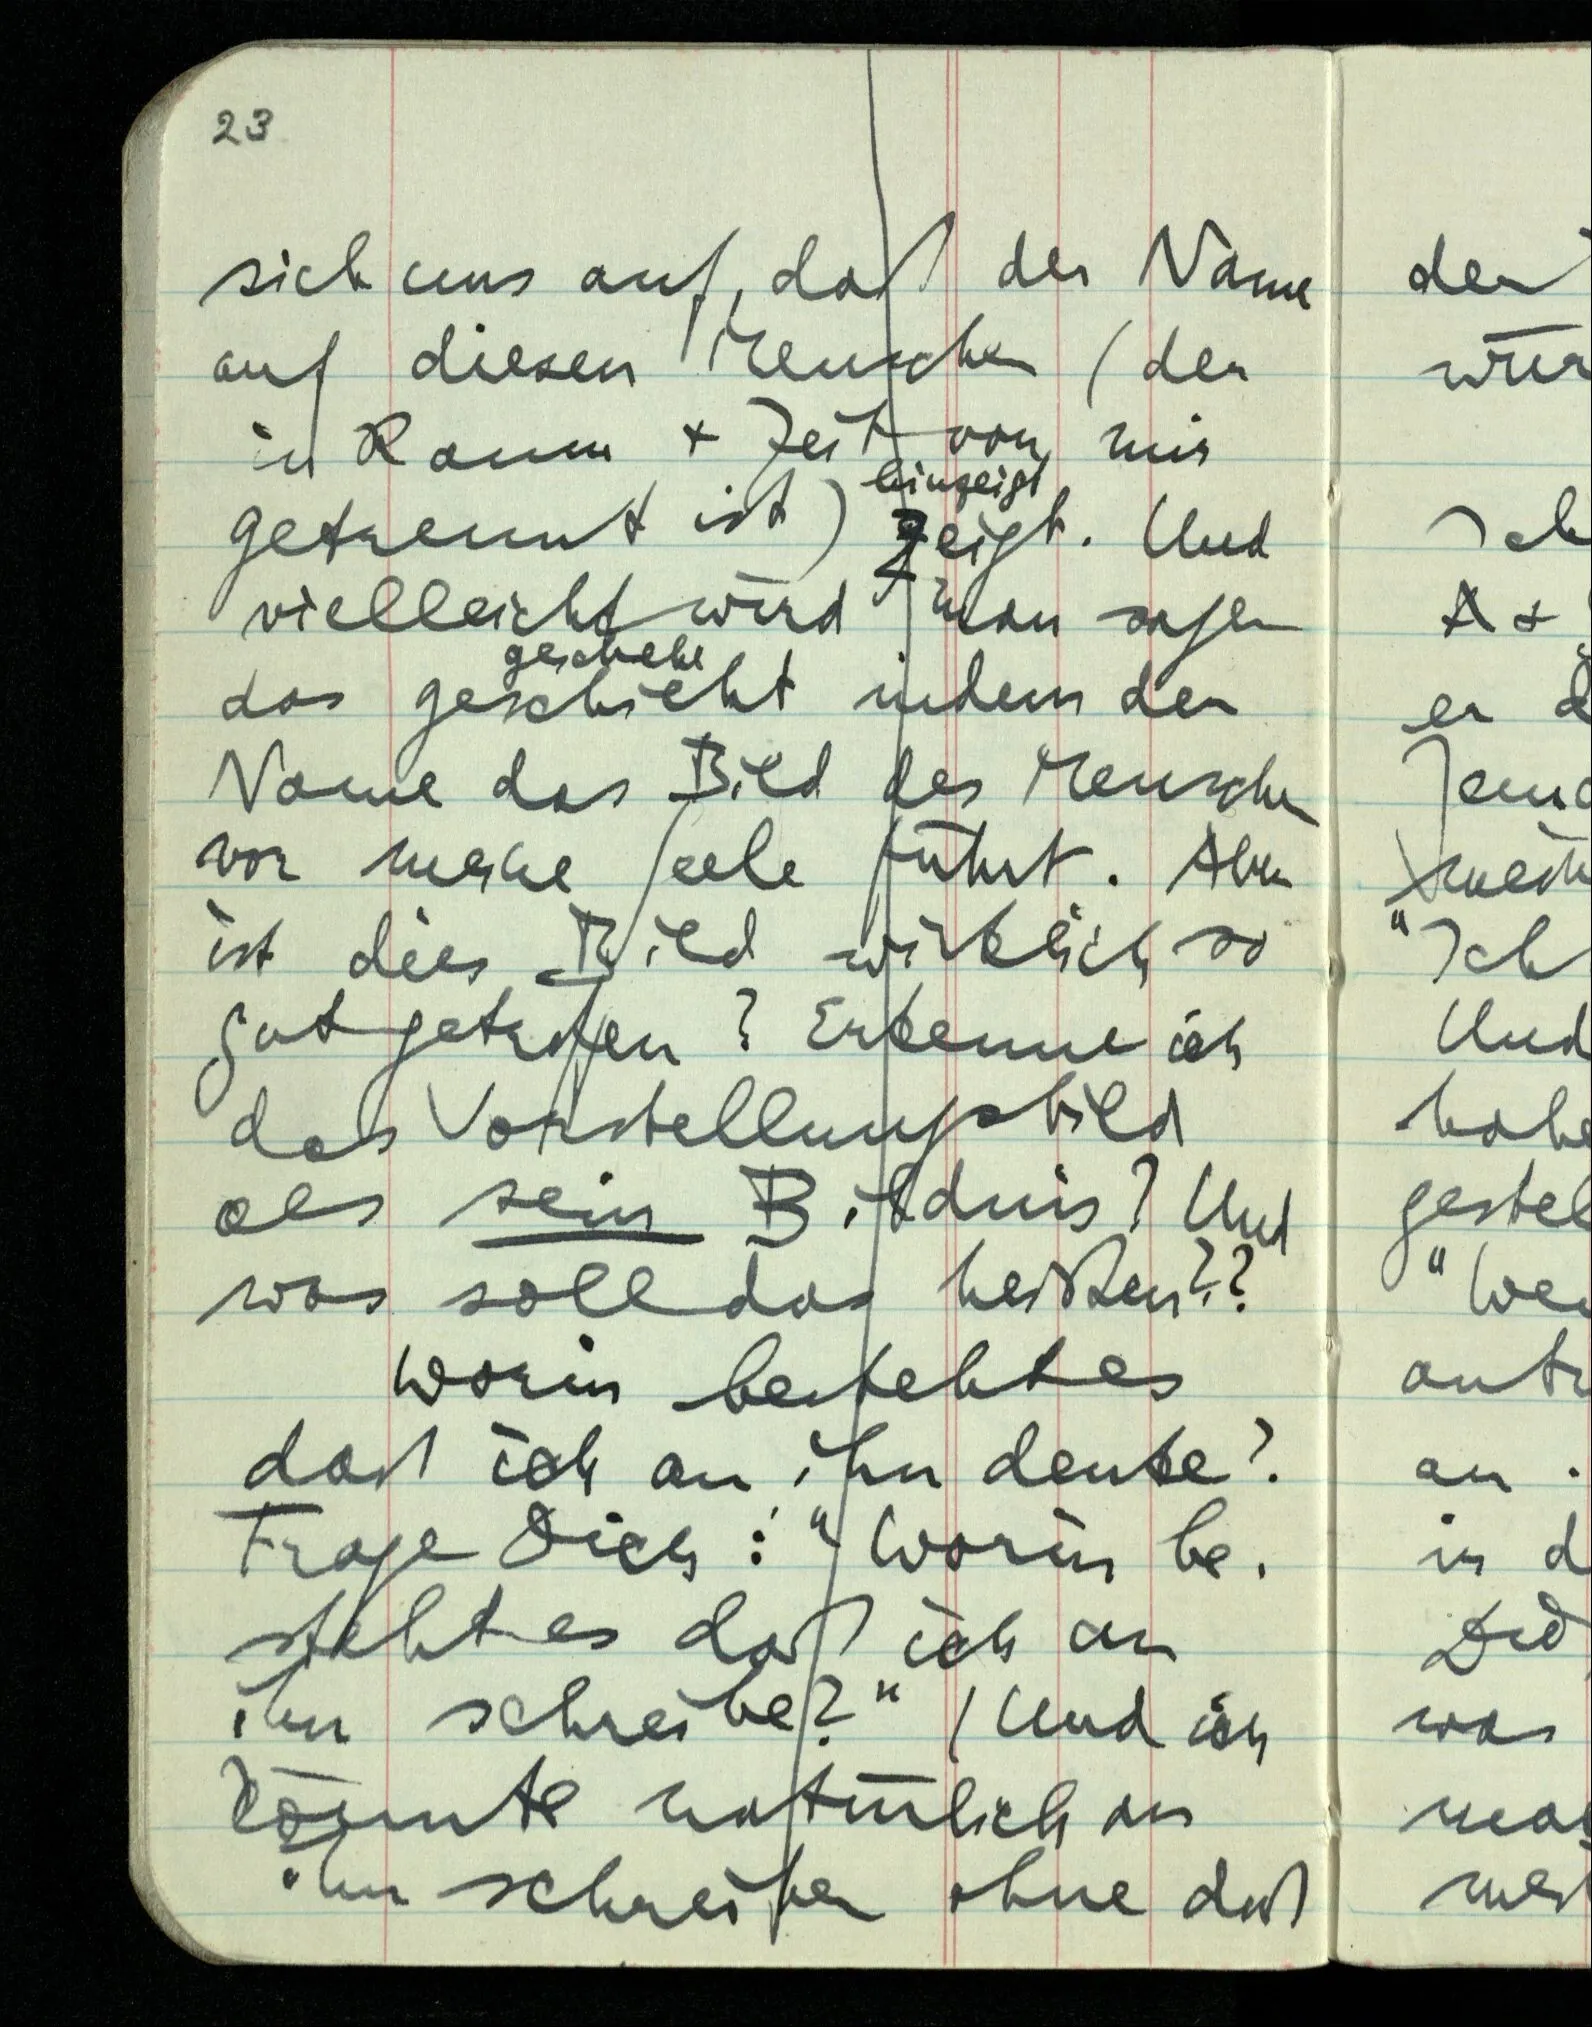 23
sich uns auf, daß der Name
auf diesen Menschen (der
in Raum + Zeit von mir
hinzeigt
getrennt ist) zeigt. Und
vielleicht wird man sagen
geschehe
das geschieht indem der
Name das Bild des Menschen
vor meine Seele führt. Aber
ist dies Bild wirklich so
gut getroffen? Erkenne ich
das Vorstellungsbild
als sein Bildnis? Und
was soll das heißen??
Worin besteht es
daß ich an ihn denke?
Frage Dich: "Worin be-
steht es daß ich an
ihn schreibe?" (Und ich
könnte natürlich an
ihn schreiben ohne daß
der
wür
Ich
A +
er d
Jema
"Ich
Und
habe
gestel
"We
antw
an
in d
was